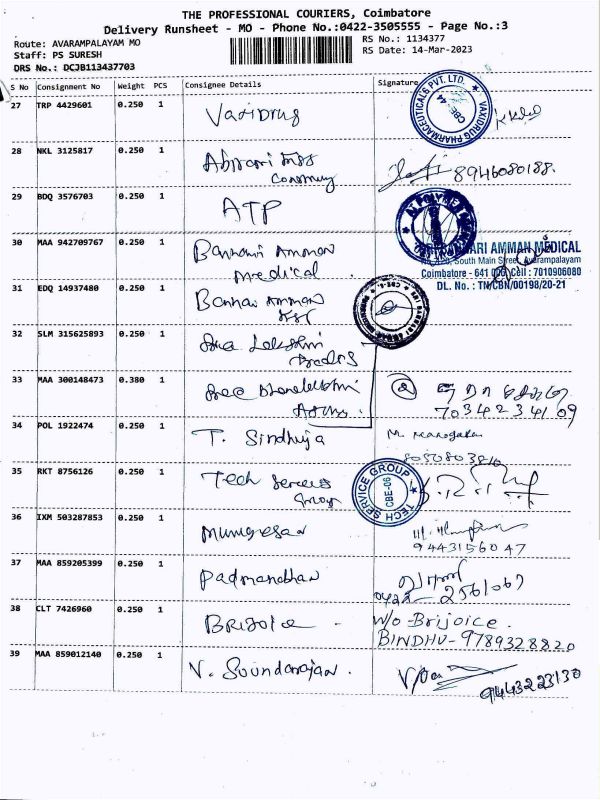 THE PROFESSIONAL COURIERS, Coimbatore
Delivery Runsheet - MO - Phone No.:0422-3505555 - Page No.:3
Route: AVARAMPALAYAM MO
Staff: PS SURESH
DRS No.: DCJB113437703
RS No.: 1134377
RS Date: 14-Mar-2023
S No Consignment No Weight PCS Consignee Details Signature
27 TRP 4429601 0.250 1 Vaxidrug
VAXIDRUG PHARMACEUTICALS PVT. LTD.
CBE-44
28 NKL 3125817 0.250 1
8946080188.
29 BDQ 3576703 0.250 1 ATP
30 MAA 942709767 0.250 1 Bannari Amman
Medical
ARI AMMAN MEDICAL
South Main Street, Avarampalayam
Coimbatore - 641 006, Cell : 7010906080
DL. No. : TN/CBN/00198/20-21
31 EDQ 14937480 0.250 1 Bannari Amman
32 SLM 315625893 0.250 1 Sree Lakshmi
Traders
33 MAA 300148473 0.380 1 Sree Dhanalakshmi
7034234109
34 POL 1922474 0.250 1 T. Sindhuja
M. Manogaran
35 RKT 8756126 0.250 1 Tech Services
Group
TECH SERVICE GROUP
CBE-06
36 IXM 503287853 0.250 1 Murugesan
9443156047
37 MAA 859205399 0.250 1 Padmanabhan
2561067
38 CLT 7426960 0.250 1 Brijoice
W/o-Brijoice.
BINDHU-9789328820
39 MAA 859012140 0.250 1 V. Soundarajan.
9443223130